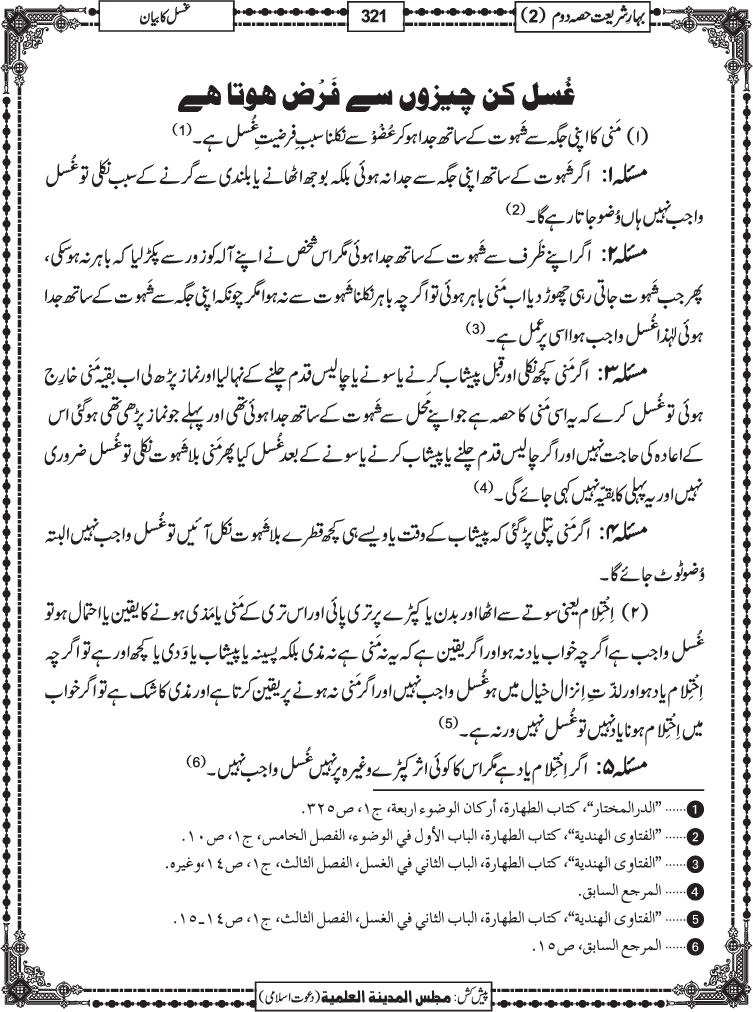 بہارِ شریعت حصہ دوم (2)
321
غسل کا بیان
غُسل کن چیزوں سے فَرْض ہوتا ہے
(۱) مَنی کا اپنی جگہ سے شَہوت کے ساتھ جدا ہو کر عُضْوْ سے نکلنا سببِ فرضیتِ غُسل ہے۔ (1)
مسئلہ ۱: اگر شَہوت کے ساتھ اپنی جگہ سے جدا نہ ہوئی بلکہ بوجھ اٹھانے یا بلندی سے گرنے کے سبب نکلی تو غُسل
واجب نہیں ہاں وُضو جاتا رہے گا۔ (2)
مسئلہ ۲: اگر اپنے ظَرف سے شَہوت کے ساتھ جدا ہوئی مگر اس شخص نے اپنے آلہ کو زور سے پکڑ لیا کہ باہر نہ ہو سکی،
پھر جب شَہوت جاتی رہی چھوڑ دیا اب مَنی باہر ہوئی تو اگرچہ باہر نکلنا شَہوت سے نہ ہوا مگر چونکہ اپنی جگہ سے شَہوت کے ساتھ جدا
ہوئی لہٰذا غُسل واجب ہوا اسی پر عمل ہے۔ (3)
مسئلہ ۳: اگر مَنی کچھ نکلی اور قبل پیشاب کرنے یا سونے یا چالیس قدم چلنے کے نہا لیا اور نماز پڑھ لی اب بقیہ مَنی خارج
ہوئی تو غُسل کرے کہ یہ اسی مَنی کا حصہ ہے جو اپنے مَحَل سے شَہوت کے ساتھ جدا ہوئی تھی اور پہلے جو نماز پڑھی تھی ہو گئی اس
کے اعادہ کی حاجت نہیں اور اگر چالیس قدم چلنے یا پیشاب کرنے یا سونے کے بعد غُسل کیا پھر مَنی بلا شَہوت نکلی تو غُسل ضروری
نہیں اور یہ پہلی کا بقیّہ نہیں کہی جائے گی۔ (4)
مسئلہ ۴: اگر مَنی پتلی پڑ گئی کہ پیشاب کے وقت یا ویسے ہی کچھ قطرے بلا شَہوت نکل آئیں تو غُسل واجب نہیں البتہ
وُضو ٹوٹ جائے گا۔
(۲) اِحْتِلام یعنی سوتے سے اٹھا اور بدن یا کپڑے پر تری پائی اور اس تری کے مَنی یا مَذی ہونے کا یقین یا احتمال ہو تو
غُسل واجب ہے اگرچہ خواب یاد نہ ہو اور اگر یقین ہے کہ یہ نہ مَنی ہے نہ مذی بلکہ پسینہ یا پیشاب یا وَدی یا کچھ اور ہے تو اگرچہ
اِحْتِلام یاد ہو اور لذّتِ اِنزال خیال میں ہو غُسل واجب نہیں اور اگر مَنی نہ ہونے پر یقین کرتا ہے اور مذی کا شک ہے تو اگر خواب
میں اِحْتِلام ہونا یاد نہیں تو غُسل نہیں ورنہ ہے۔ (5)
مسئلہ ۵: اگر اِحْتِلام یاد ہے مگر اس کا کوئی اثر کپڑے وغیرہ پر نہیں غُسل واجب نہیں۔ (6)
1 ...... "الدرالمختار"، كتاب الطهارة، أركان الوضوء اربعة، ج۱، ص۳۲٥.
2 ...... "الفتاوى الهندية"، كتاب الطهارة، الباب الأول في الوضوء، الفصل الخامس، ج۱، ص۱۰.
3 ...... "الفتاوى الهندية"، كتاب الطهارة، الباب الثاني في الغسل، الفصل الثالث، ج۱، ص۱٤، وغيره.
4 ...... المرجع السابق.
5 ...... "الفتاوى الهندية"، كتاب الطهارة، الباب الثاني في الغسل، الفصل الثالث، ج۱، ص۱٤ـ۱٥.
6 ...... المرجع السابق، ص۱٥.
پیش کش: مجلس المدينة العلمية (دعوت اسلامی)